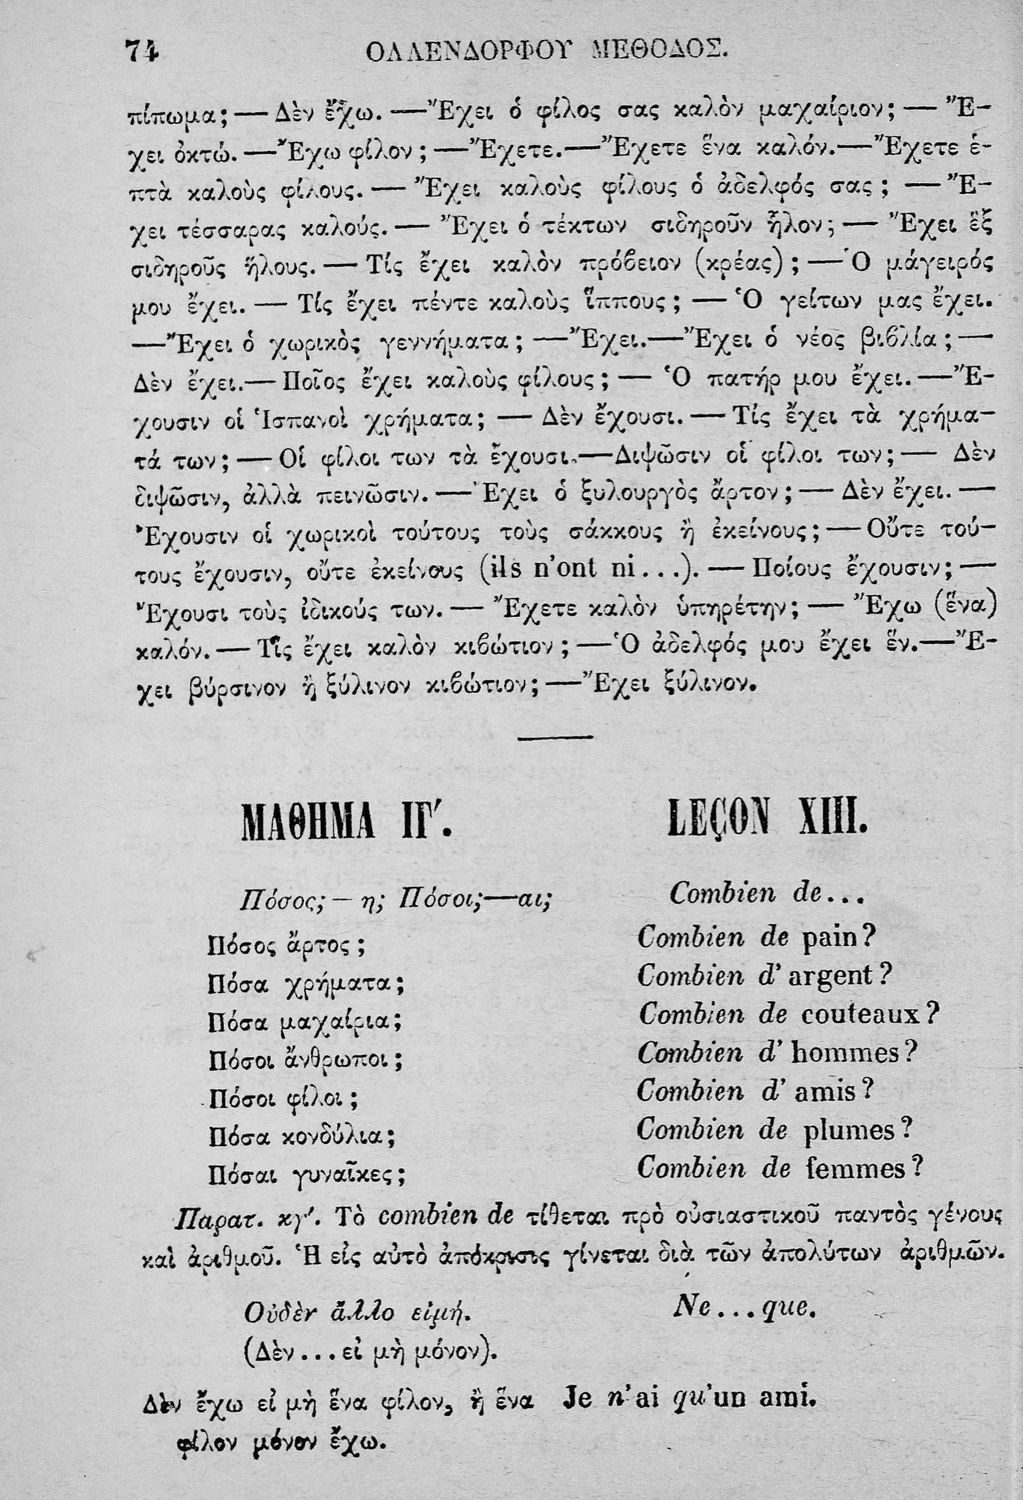 74
ΟΛΛΕΝΔΟΡΦΟΥ ΜΕΘΟΔΟΣ.
πίπωμα; — Δὲν ἔχω. — Ἔχει ὁ φίλος σας καλὸν μαχαίριον; — Ἔ-
χει ὀκτώ. — Ἔχω φίλον; — Ἔχετε. — Ἔχετε ἕνα καλόν. — Ἔχετε ἑ-
πτὰ καλοὺς φίλους. — Ἔχει καλοὺς φίλους ὁ ἀδελφός σας; — Ἔ-
χει τέσσαρας καλούς. — Ἔχει ὁ τέκτων σιδηροῦν ἧλον; — Ἔχει ἓξ
σιδηροῦς ἥλους. — Τίς ἔχει καλὸν πρόβειον (κρέας); — Ὁ μάγειρός
μου ἔχει. — Τίς ἔχει πέντε καλοὺς ἵππους; — Ὁ γείτων μας ἔχει.
— Ἔχει ὁ χωρικὸς γεννήματα; — Ἔχει. — Ἔχει ὁ νέος βιβλία; —
Δὲν ἔχει. — Ποῖος ἔχει καλοὺς φίλους; — Ὁ πατήρ μου ἔχει. — Ἔ-
χουσιν οἱ Ἱσπανοὶ χρήματα; — Δὲν ἔχουσι. — Τίς ἔχει τὰ χρήμα-
τά των; — Οἱ φίλοι των τὰ ἔχουσι. — Διψῶσιν οἱ φίλοι των; — Δὲν
διψῶσιν, ἀλλὰ πεινῶσιν. — Ἔχει ὁ ξυλουργὸς ἄρτον; — Δὲν ἔχει. —
Ἔχουσιν οἱ χωρικοὶ τούτους τοὺς σάκκους ἢ ἐκείνους; — Οὔτε τού-
τους ἔχουσιν, οὔτε ἐκείνους (ils n'ont ni...). — Ποίους ἔχουσιν; —
Ἔχουσι τοὺς ἰδικούς των. — Ἔχετε καλὸν ὑπηρέτην; — Ἔχω (ἕνα)
καλόν. — Τίς ἔχει καλὸν κιβώτιον; — Ὁ ἀδελφός μου ἔχει ἕν. — Ἔ-
χει βύρσινον ἢ ξύλινον κιβώτιον; — Ἔχει ξύλινον.
ΜΑΘΗΜΑ ΙΓ′.
LEÇON XIII.
Πόσος; — η; Πόσοι; — αι;
Combien de...
Πόσος ἄρτος;
Combien de pain?
Πόσα χρήματα;
Combien d' argent?
Πόσα μαχαίρια;
Combien de couteaux?
Πόσοι ἄνθρωποι;
Combien d' hommes?
Πόσοι φίλοι;
Combien d' amis?
Πόσα κονδύλια;
Combien de plumes?
Πόσαι γυναῖκες;
Combien de femmes?
Παρατ. κγ′. Τὸ combien de τίθεται πρὸ οὐσιαστικοῦ παντὸς γένους
καὶ ἀριθμοῦ. Ἡ εἰς αὐτὸ ἀπόκρισις γίνεται διὰ τῶν ἀπολύτων ἀριθμῶν.
Οὐδὲν ἄλλο εἰμή.
Ne...que.
(Δὲν...εἰ μὴ μόνον).
Δὲν ἔχω εἰ μὴ ἕνα φίλον, ἢ ἕνα
Je n'ai qu'un ami.
φίλον μόνον ἔχω.